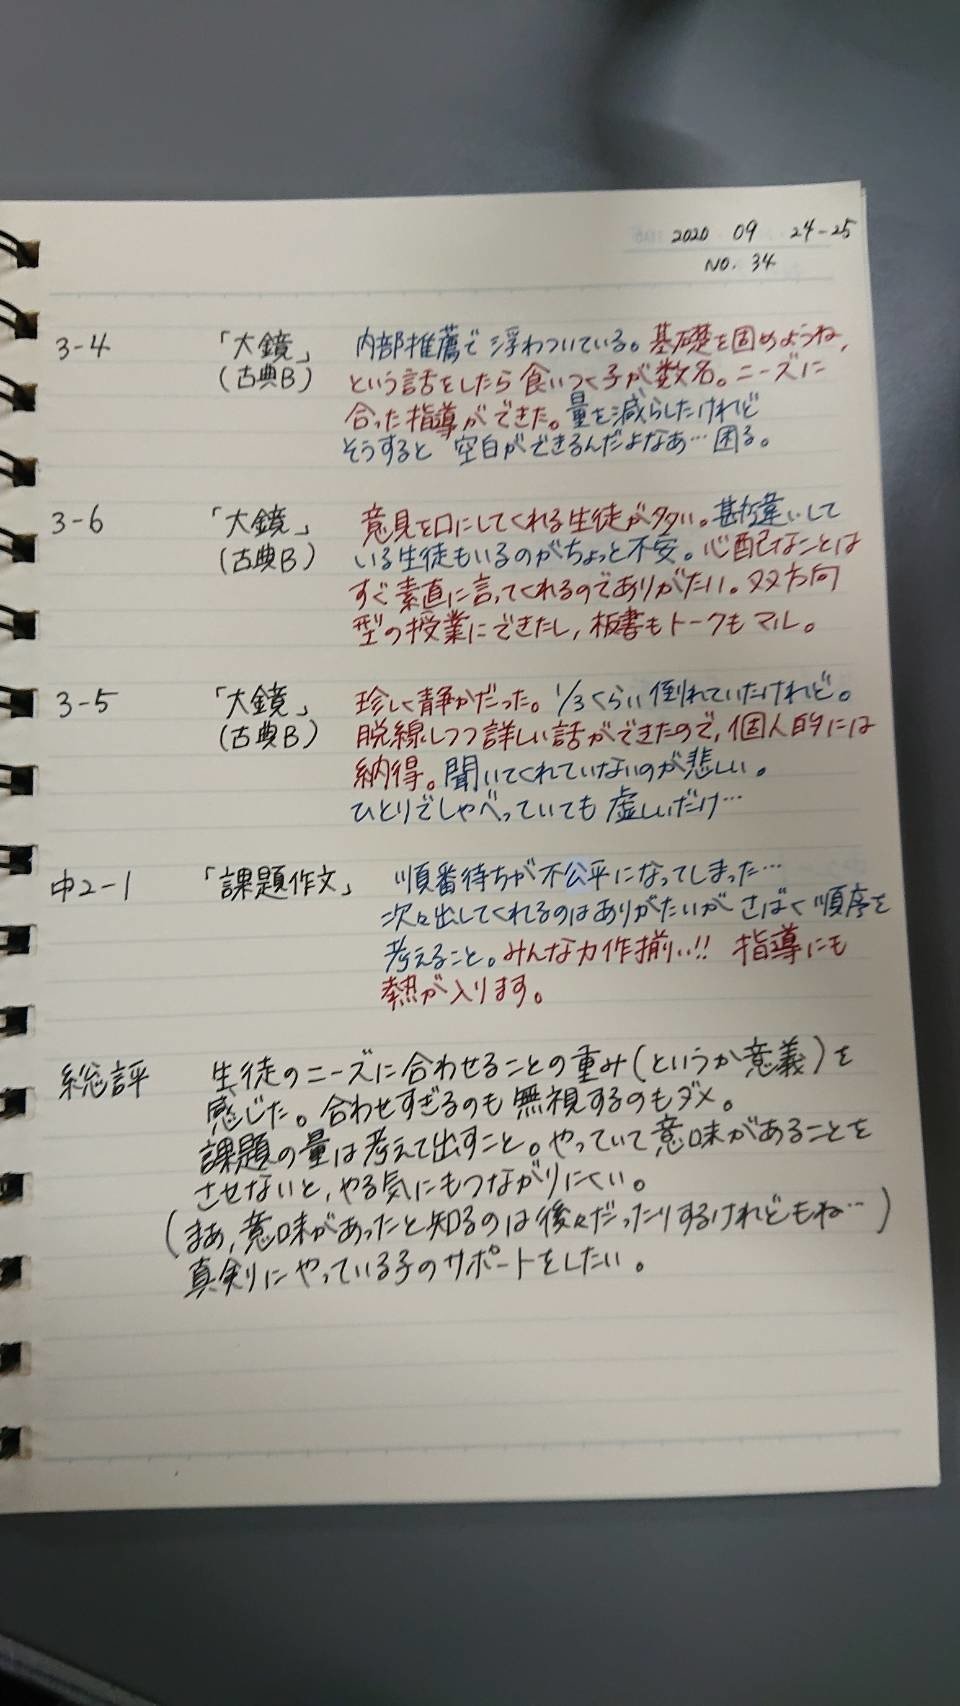 2020 09 24-25
NO. 34
3-4 「大鏡」 内部推薦で浮わついている。基礎を固めようね,
(古典B) という話をしたら食いつく子が数名。ニーズに
合った指導ができた。量を減らしたけれど
そうすると 空白ができるんだよなぁ…困る。
3-6 「大鏡」 意見を口にしてくれる生徒が多い。勘違いして
(古典B) いる生徒もいるのがちょっと不安。心配なことは
すぐ素直に言ってくれるのでありがたい。双方向
型の授業にできたし,板書もトークもマル。
3-5 「大鏡」 珍しく静かだった。1/3くらい倒れていたけれど。
(古典B) 脱線しつつ詳しい話ができたので,個人的には
納得。聞いてくれていないのが悲しい。
ひとりでしゃべっていても虚しいだけ…
中2-1 「課題作文」 順番待ちが不公平になってしまった…
次々出してくれるのはありがたいがさばく順序を
考えること。みんな力作揃い!! 指導にも
熱が入ります。
総評 生徒のニーズに合わせることの重み(というか意義)を
感じた。合わせすぎるのも無視するのもダメ。
課題の量は考えて出すこと。やっていて意味があることを
させないと,やる気にもつながりにくい。
(まあ,意味があったと知るのは後々だったりするけれどもね…)
真剣にやっている子のサポートをしたい。